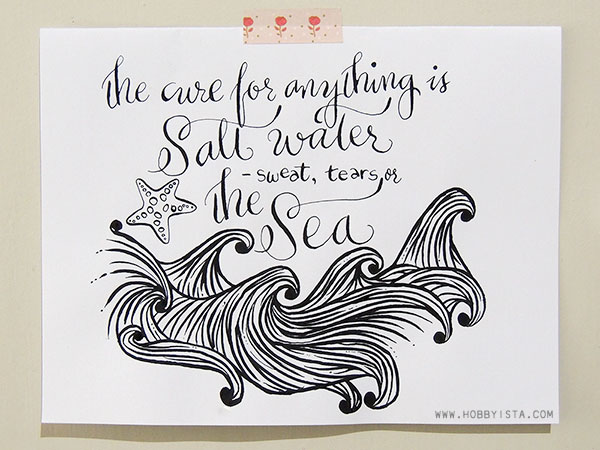 the cure for anything is
Salt water
- sweat, tears, or
the
Sea
WWW.HOBBYISTA.COM